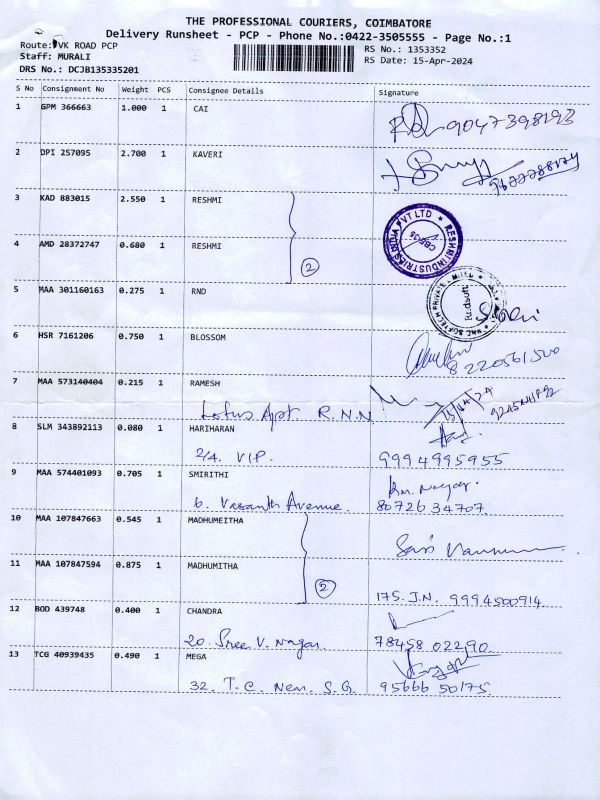 THE PROFESSIONAL COURIERS, COIMBATORE
Delivery Runsheet - PCP - Phone No.:0422-3505555 - Page No.:1
Route: VK ROAD PCP
RS No.: 1353352
Staff: MURALI
RS Date: 15-Apr-2024
DRS No.: DCJB135335201
S No Consignment No Weight PCS Consignee Details Signature
1 GPM 366663 1.000 1 CAI
9047398193
2 DPI 257095 2.700 1 KAVERI
3 KAD 883015 2.550 1 RESHMI
RESHMI INDUSTRIES INDIA PVT LTD
4 AMD 28372747 0.680 1 RESHMI
2
5 MAA 301160163 0.275 1 RND
Rndsoft
6 HSR 7161206 0.750 1 BLOSSOM
8220561500
7 MAA 573140404 0.215 1 RAMESH
Lotus Apt. R.N.N
8 SLM 343892113 0.080 1 HARIHARAN
2/4. V.I.P. 9994995955
9 MAA 574401093 0.705 1 SMIRITHI
Rm. Nagar.
6. Vasanth Avenue. 80726 34707.
10 MAA 107847663 0.545 1 MADHUMEITHA
11 MAA 107847594 0.875 1 MADHUMITHA
2
175. J.N. 9994500914.
12 BOD 439748 0.400 1 CHANDRA
20 Sree V. Nagar. 78458 02290.
13 TCG 40939435 0.490 1 MEGA
32. T.C. Near. S.G. 95666 50175